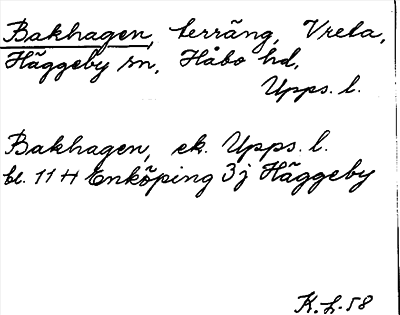 Bakhagen, terräng, Vreta,
Häggeby sn, Håbo hd,
Upps. l.
Bakhagen, ek. Upps. l.
bl. 11 H Enköping 3j Häggeby
K.L. 58